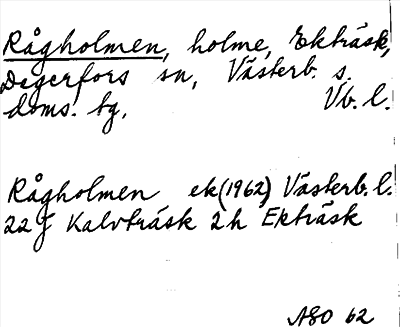 Rågholmen, holme, Ekträsk,
Degerfors sn, Västerb. s.
doms. tg. Vb. l.
Rågholmen ek (1962) Västerb. l.
22 J Kalvträsk 2 h Ekträsk
ASO 62